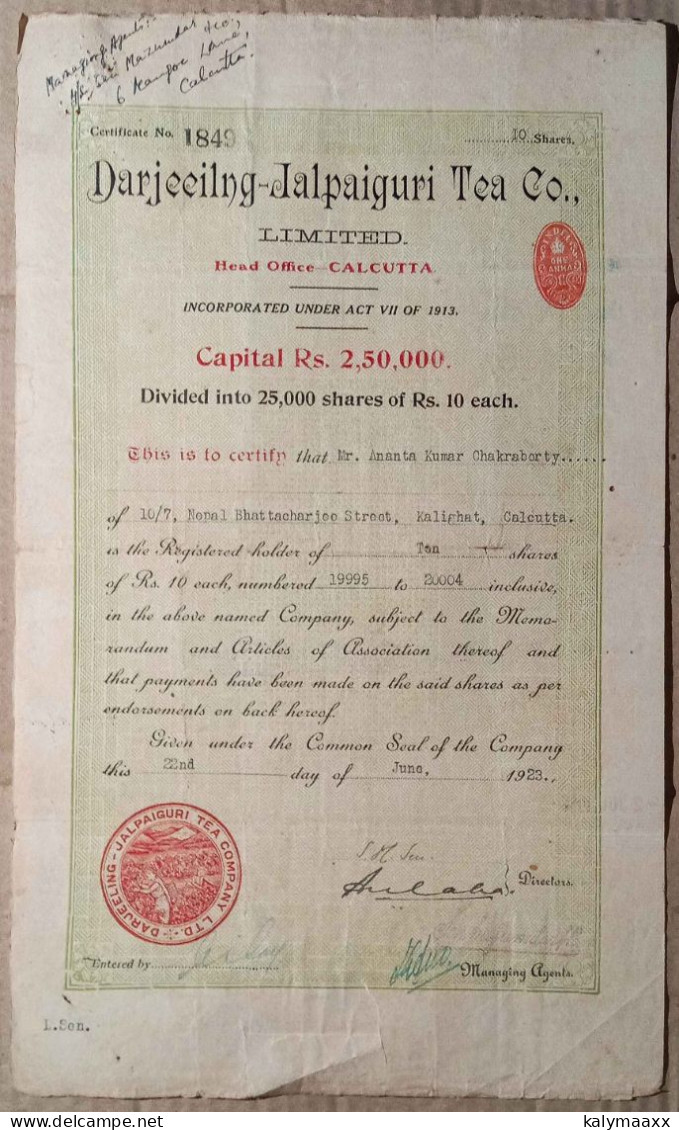 Managing Agents:-
M/s Sen Mazumdar & Co,
6 Lane,
Calcutta.
Certificate No. 1849 ............10..Shares.
Darjeeilng-Jalpaiguri Tea Co.,
LIMITED.
Head Office-CALCUTTA
INDIA
ONE
ANNA
INCORPORATED UNDER ACT VII OF 1913.
Capital Rs. 2,50,000.
Divided into 25,000 shares of Rs. 10 each.
This is to certify that Mr. Ananta Kumar Chakraborty......
of 10/7, Nepal Bhattacharjee Street, Kalighat, Calcutta.
is the Registered holder of Ten shares
of Rs. 10 each, numbered 19995 to 20004 inclusive,
in the above named Company, subject to the Memo-
randum and Articles of Association thereof and
that payments have been made on the said shares as per
endorsements on back hereof.
Given under the Common Seal of the Company
this 22nd day of June, 1923..
DARJEELING-JALPAIGURI TEA COMPANY LTD.
S. N. Sen.
Directors.
Entered by
Managing Agents.
L.Sen.
kalymaaxx